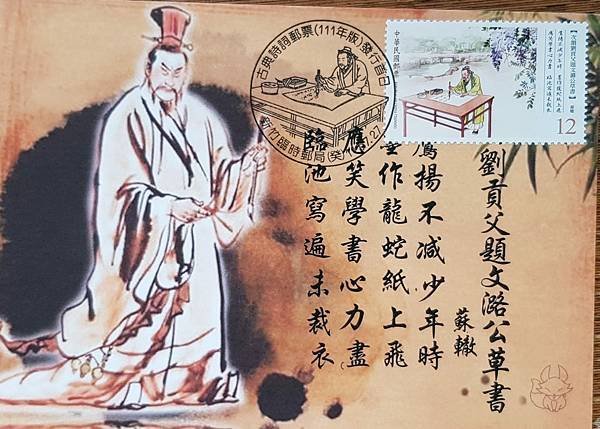 古典詩詞郵票(111年版)發行首日
新竹臨時郵局(癸)
7.27
中華民國郵票
12
劉貢父題文潞公草書
蘇轍
鷹揚不減少年時
墨作龍蛇紙上飛
應笑學書心力盡
臨池寫遍未裁衣